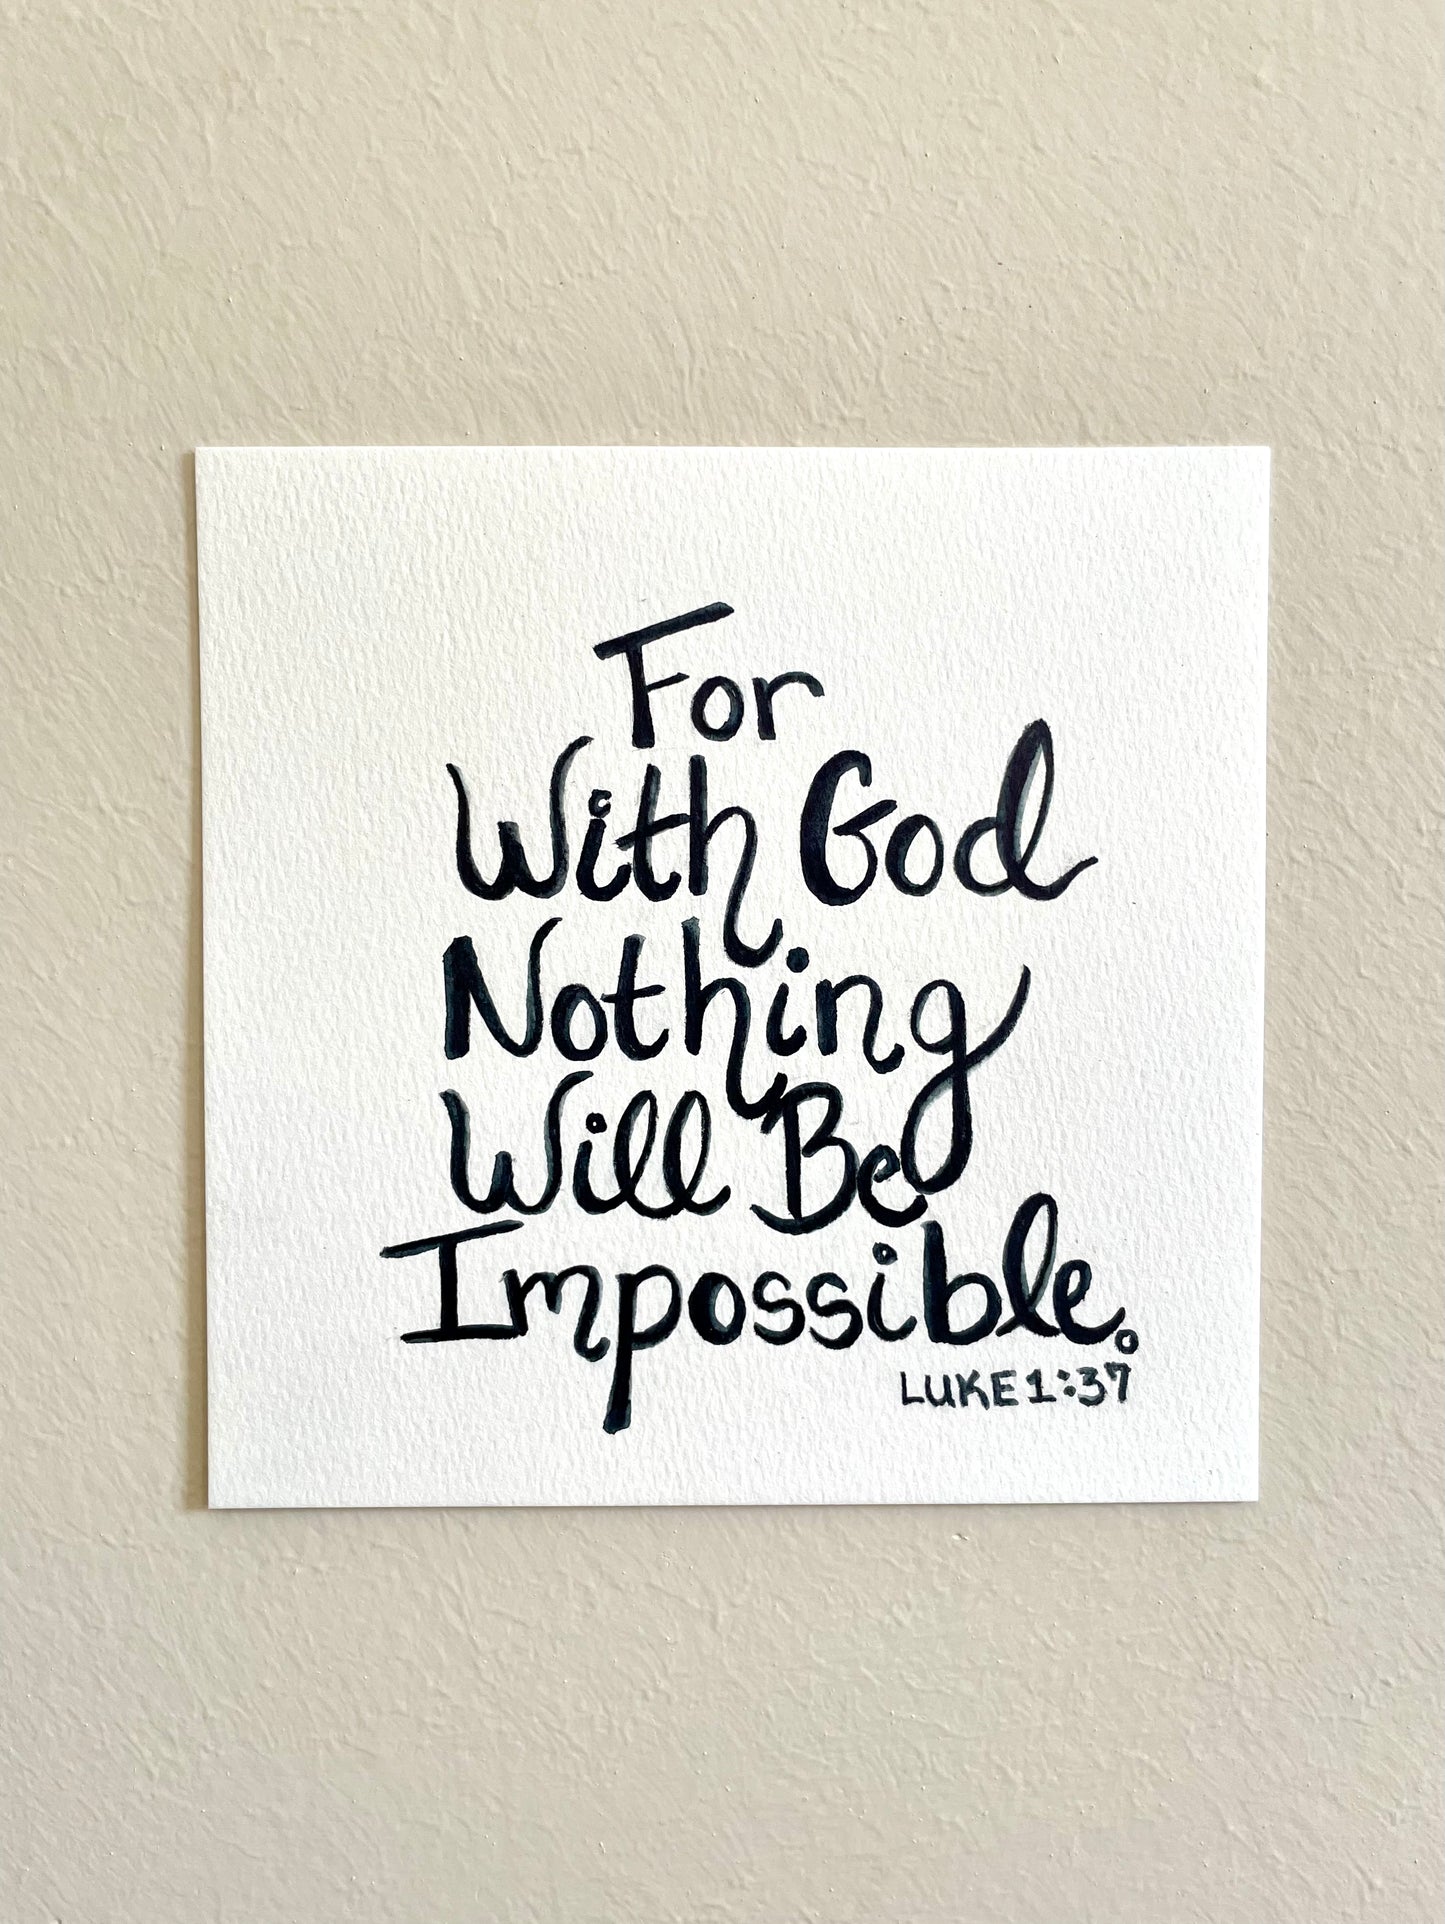 For
With God
Nothing
Will Be
Impossible.
LUKE 1:37